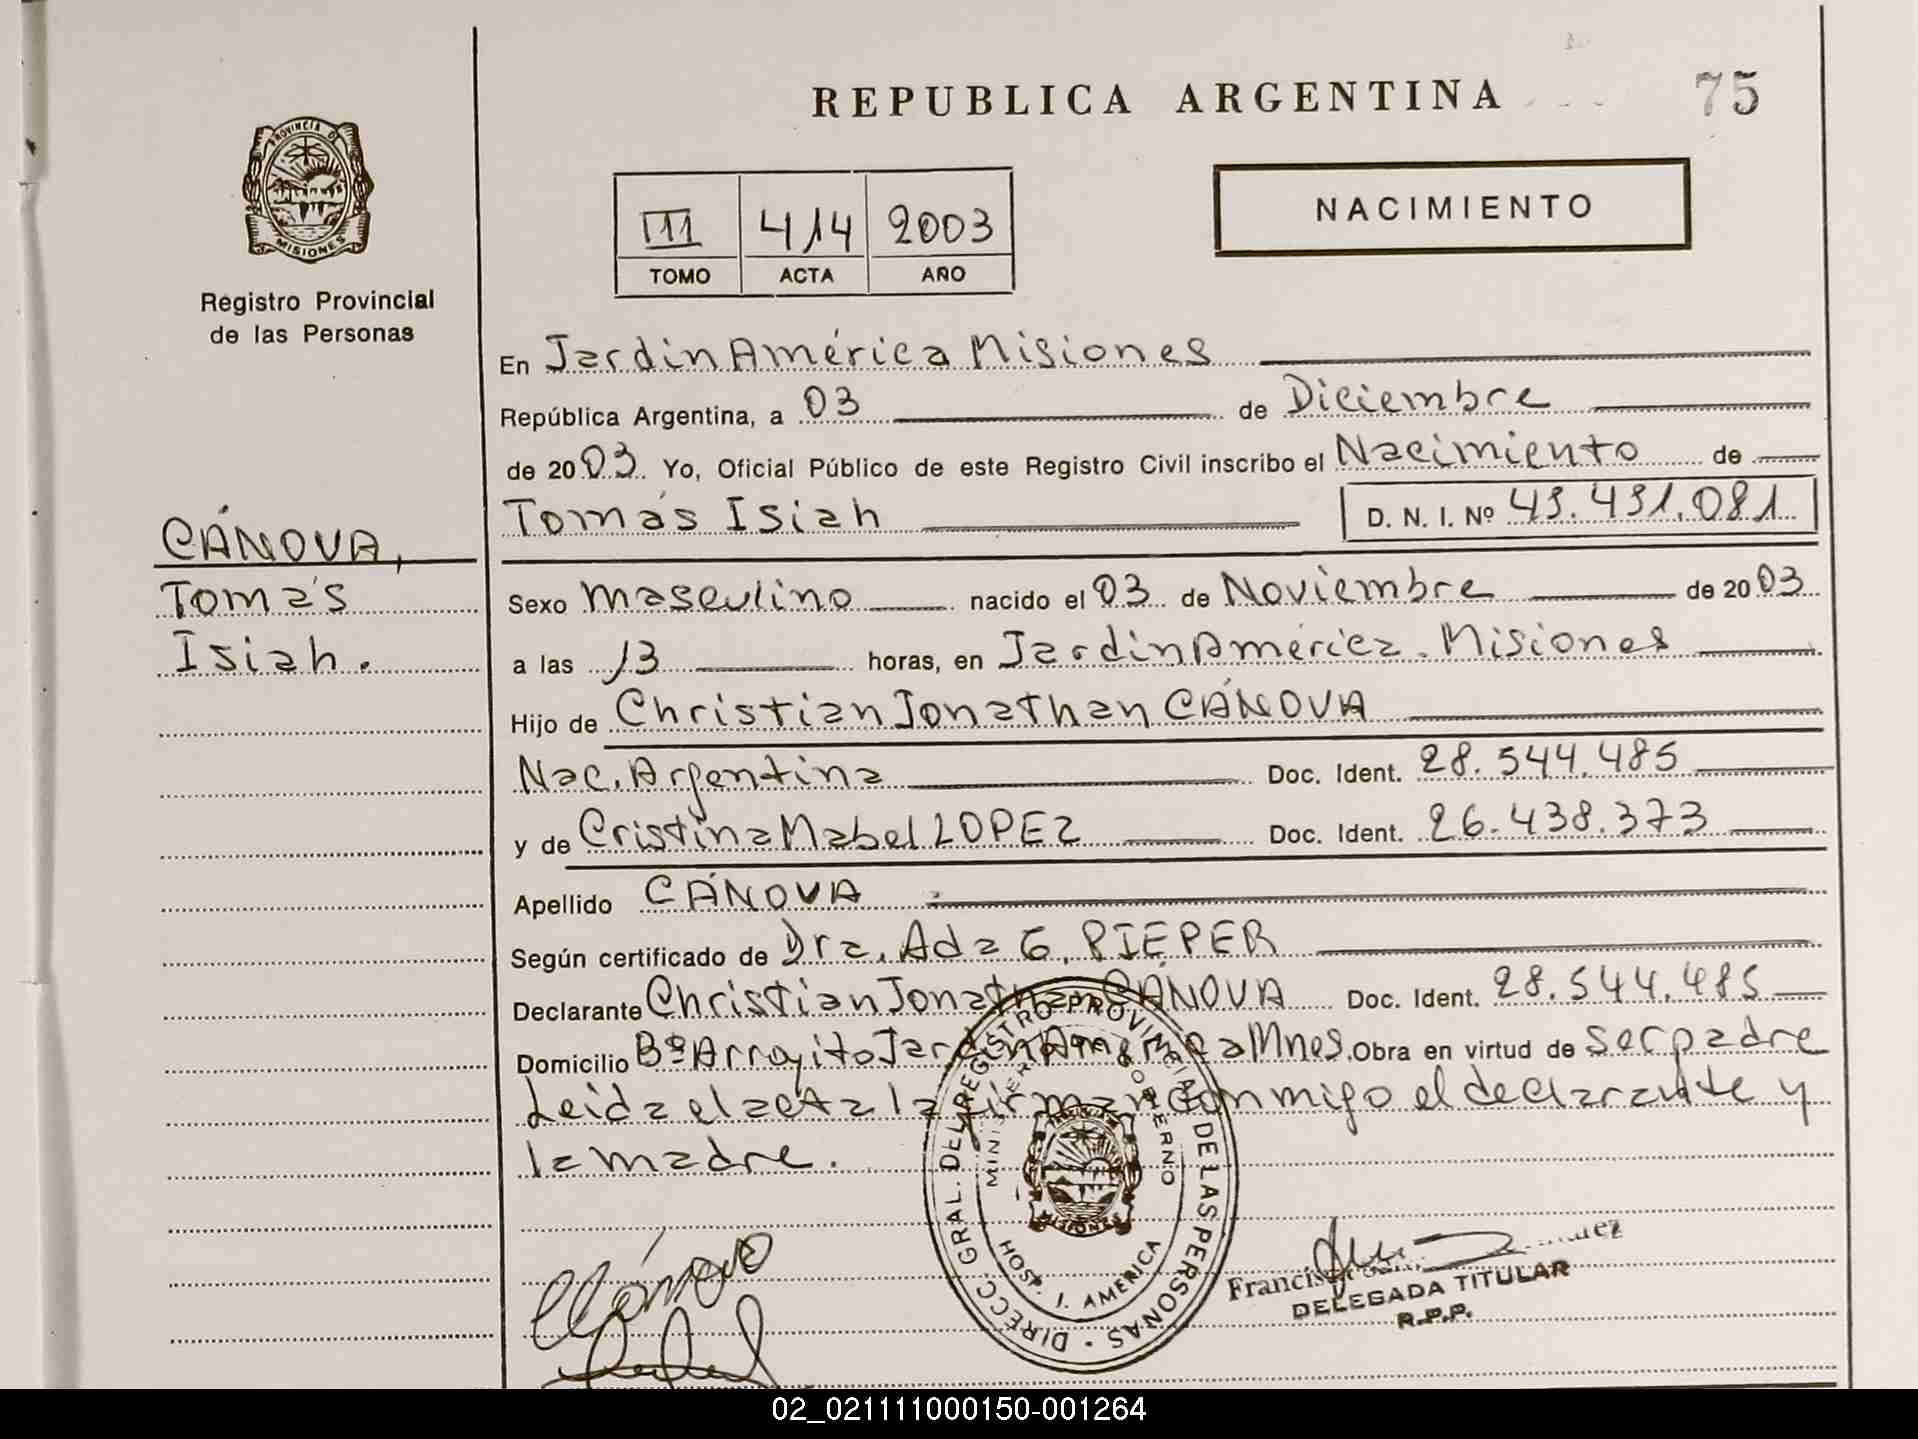 REPUBLICA ARGENTINA
75
PROVINCIA DE
MISIONES
Registro Provincial
de las Personas
III 414 2003
TOMO ACTA AÑO
NACIMIENTO
En Jardin América Misiones
República Argentina, a 03 de Diciembre
de 2003. Yo, Oficial Público de este Registro Civil inscribo el Nacimiento de
Tomás Isiah D. N. I. Nº
CÁNOVA,
Tomás
Isiah.
Sexo masculino nacido el 03 de Noviembre de 2003
a las 13 horas, en Jardin América. Misiones
Hijo de Christian Jonathan CÁNOVA
Nac. Argentina Doc. Ident. 28.544.485
y de Cristina Mabel LOPEZ Doc. Ident. 26.438.373
Apellido CÁNOVA
Según certificado de Dra. Ada G. PIEPER
Declarante Christian Jonathan CÁNOVA Doc. Ident. 28.544.485
Domicilio Bº Arroyito Jardin América Mnes. Obra en virtud de ser padre
Leida el acta la firman conmigo el declarante y
la madre.
DIRECC. GRAL. DEL REGISTRO PROVINCIAL DE LAS PERSONAS
MINISTERIO DE GOBIERNO
MISIONES
HOSP. J. AMERICA
CCánova
DELEGADA TITULAR
R.P.P.
02_021111000150-001264